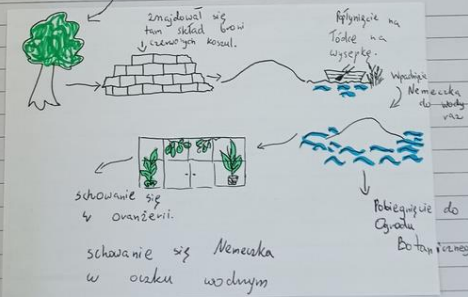 znajdował się
tam skład broni
czerwonych koszul.
Popłynięcie na
łódce na
wysepkę.
Wpadnięcie
Nemeczka
do wody
raz
schowanie się
w oranżerii.
Pobiegnięcie do
Ogrodu
Botanicznego
schowanie się Nemeczka
w oczku wodnym